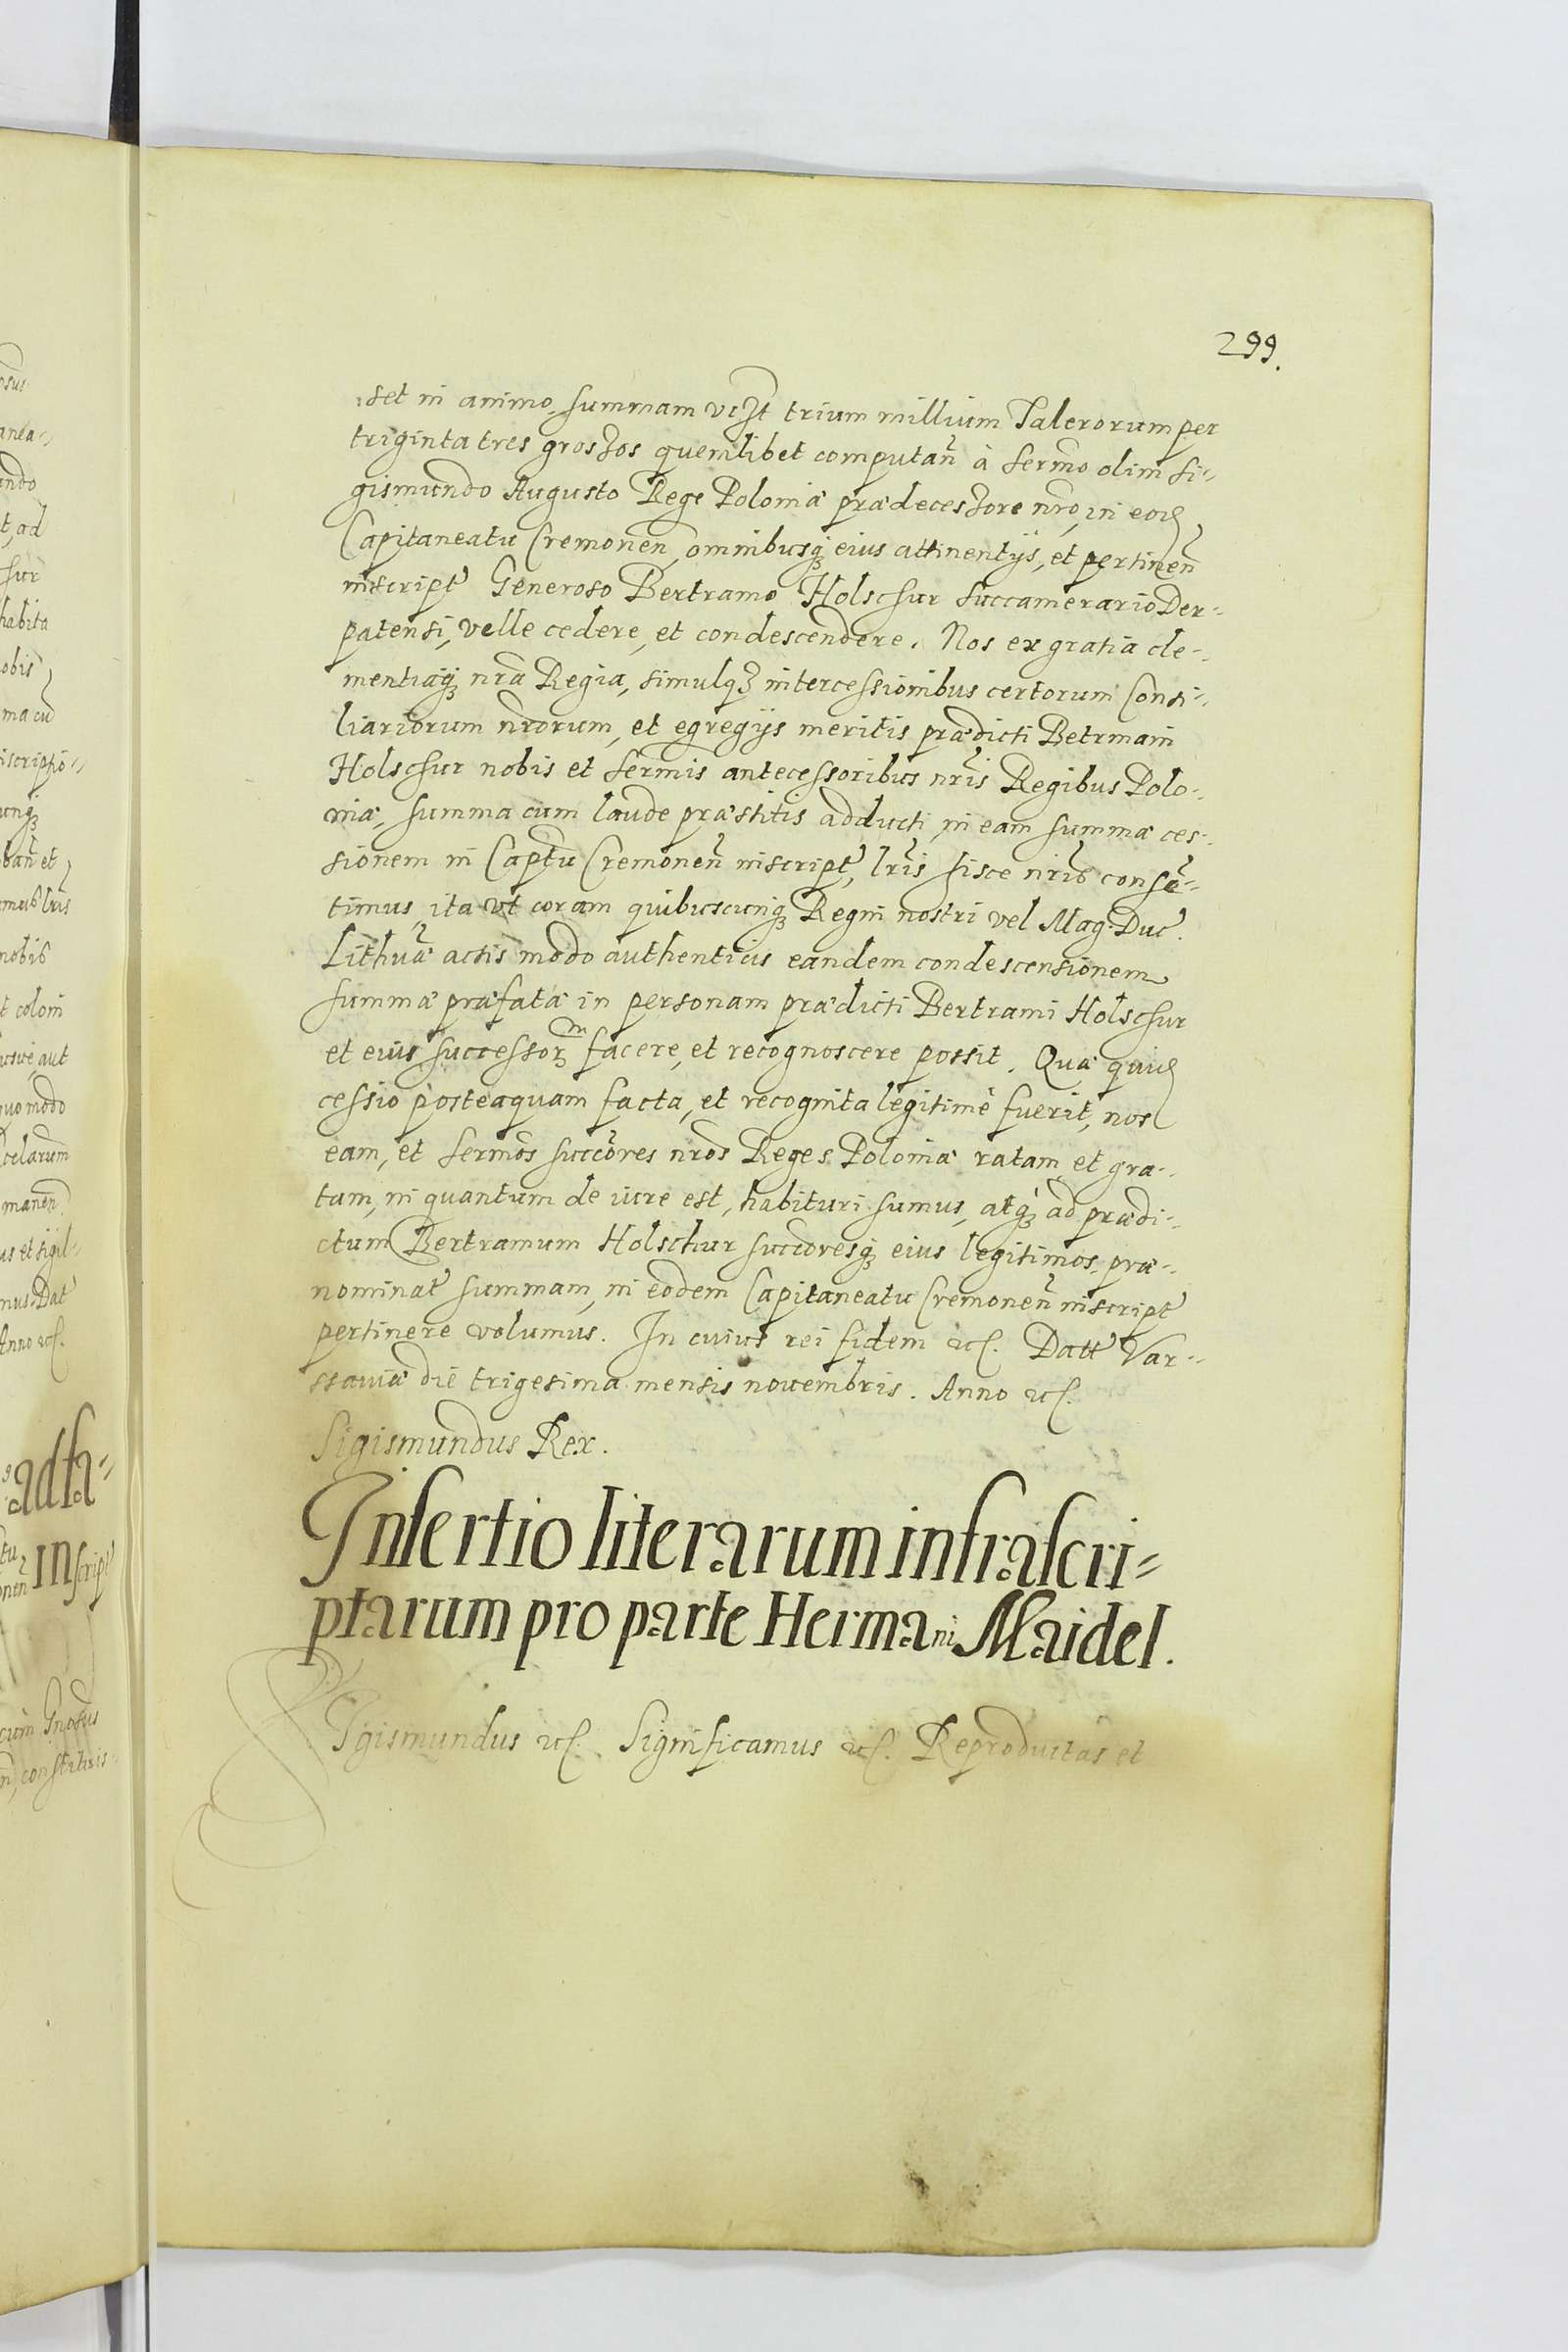 299.
set in animo, summam vcзt trium millium Talerorum per
triginta tres grosзos quemlibet computan̄ à sermo olim Si-
gismundo Augusto Rege Poloniæ prædecesзore nro, in eod
Capitaneatu Cremonen̄, omnibusq̨ eius attinentijs, et pertinen̄
inscript Generoso Bertramo Holschur succamerario Der-
patensi, velle cedere, et condescendere. Nos ex gratia cle-
mentiaq̨ nra Regia, simulq̨ intercessionibus certorum Consi-
liariorum nrorum, et egregijs meritis prædicti Betrmam
Holschur nobis et sermis antecessoribus nris Regibus Polo-
niæ, summa cum laude præstitis adducti, in eam summæ ces-
sionem in Captu Cremonen̄ inscript, lris hisce nris consē-
timus, ita vt coram quibuscunq̨ Regni nostri vel Mag. Duc.
Lithuæ actis modo authenticis eandem condescensionem
summæ præfatæ in personam prædicti Bertrami Holschur
et eius successorm facere, et recognoscere possit. Quæ quid
cessio posteaquam facta, et recognita legitimè fuerit, nos
eam, et sermos succores nros Reges Poloniæ ratam et gra-
tam, in quantum de iure est, habituri sumus, atq̨ ad prædi-
ctum Bertramum Holschur succoresq̨ eius legitimos, præ-
nominat summam, in eodem Capitaneatu Cremonen̄ inscript
pertinere volumus. In cuius rei fidem etc. Datt Var-
ssauiæ die trigesima mensis nouembris. Anno etc.
Sigismundus Rex.
Insertio literarum infrascri-
ptarum pro parte Hermani Maidel.
SIgismundus etc. Significamus etc. Reproductas et